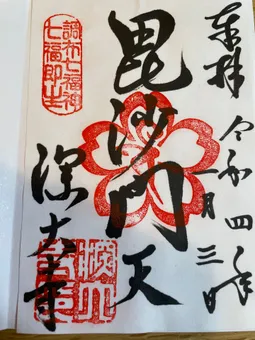 奉拝 令和四年一月三日
毘沙門天
深大寺
調布七福神
七福即生